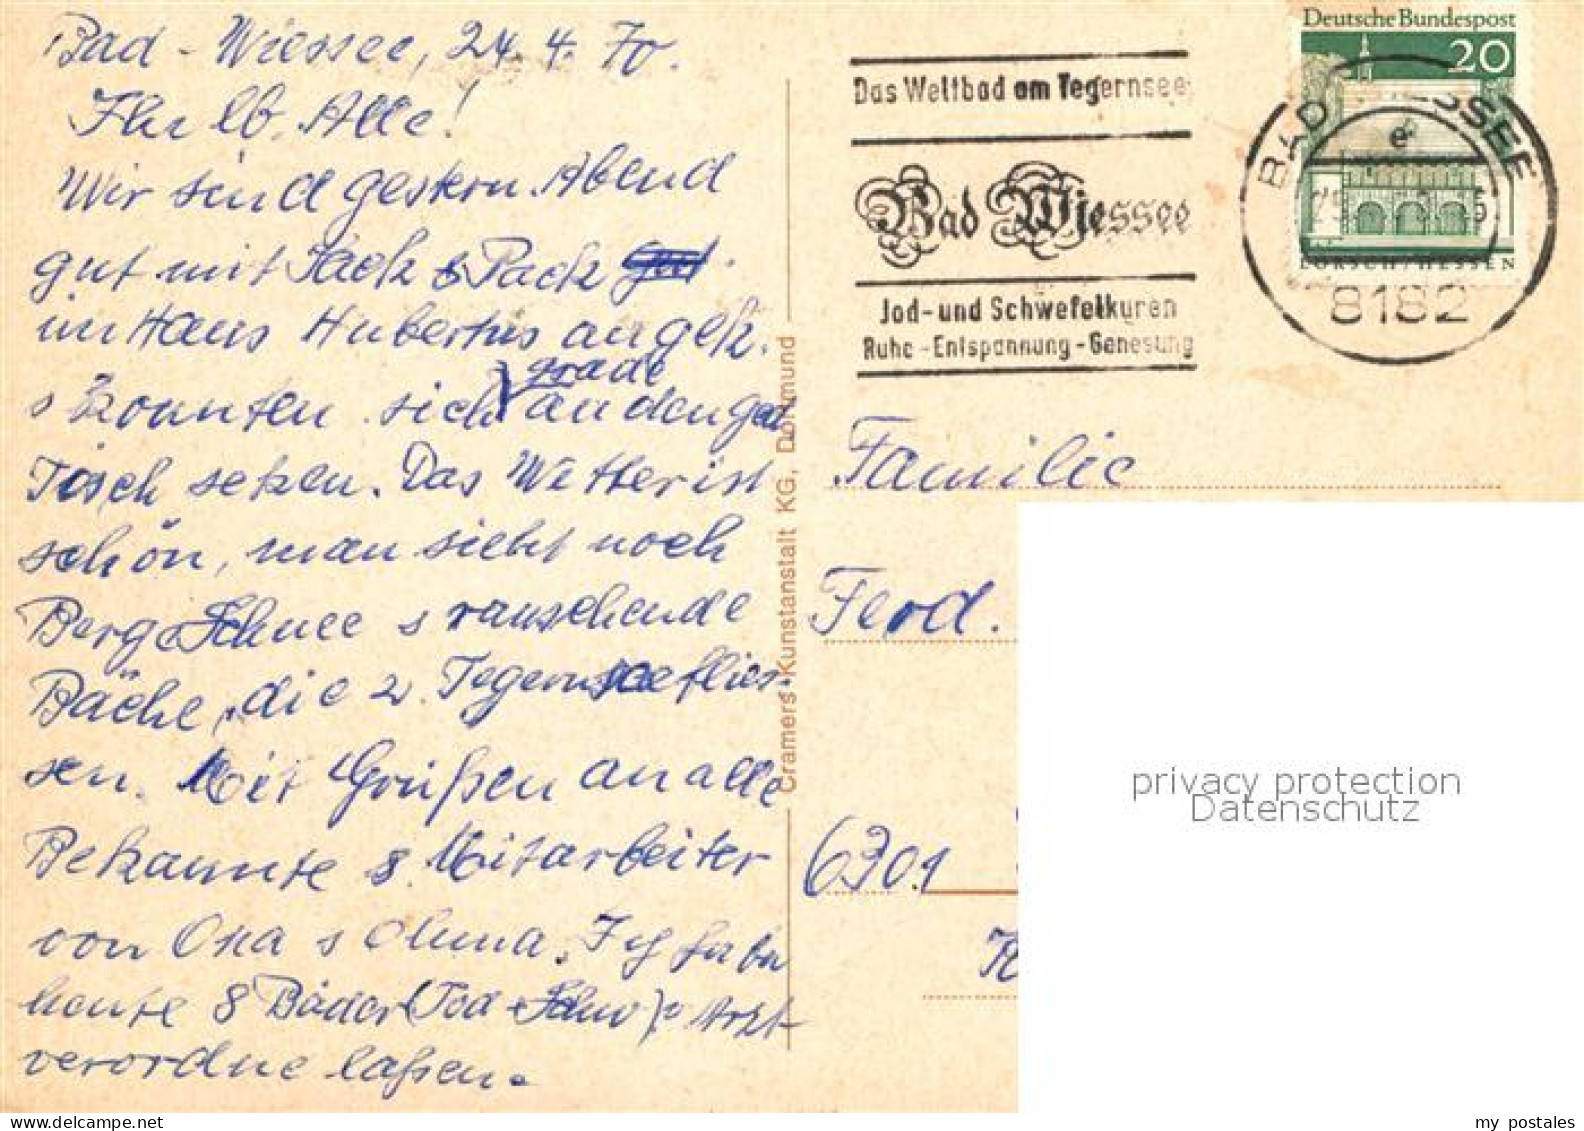 Bad - Wiessee, 24.4.70.
Ihr lb. Alle!
Wir sind gestern Abend
gut mit Sack & Pack
im Haus Hubertus angek.
s konnten sich grade an den ged.
Tisch setzen. Das Wetter ist
schön, man sieht noch
Berge Schnee s rauschende
Bäche, die z. Tegernsee flies-
sen. Mit Grüßen an alle
Bekannte s. Mitarbeiter
von Oma s Oluna. Ich habe
heute 8 Bäder (Jod + Schw) v Arzt
verordne laßen.
Cramers Kunstanstalt KG, Dortmund
Das Weltbad am Tegernsee
Bad Wiessee
Jod- und Schwefelkuren
Ruhe - Entspannung - Genesung
Deutsche Bundespost
20
LORSCH/HESSEN
BAD WIESSEE
e
8182
Familie
Ferd.
6301
privacy protection
Datenschutz
my postales